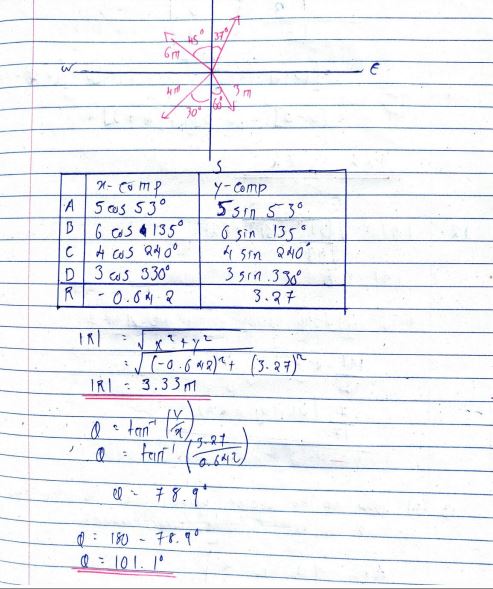 45° 37°
6m
W E
4m 3m
30° 60°
S
x-comp y-comp
A 5 cos 53° 5 sin 53°
B 6 cos 135° 6 sin 135°
C 4 cos 240° 4 sin 240°
D 3 cos 330° 3 sin 330°
R -0.642 3.27
|R| = √x²+y²
= √(-0.642)²+ (3.27)²
|R| = 3.33m
Q = tan⁻¹ (y/x)
Q = tan⁻¹ (3.27/0.642)
Q = 78.9°
Q = 180 - 78.9°
Q = 101.1°